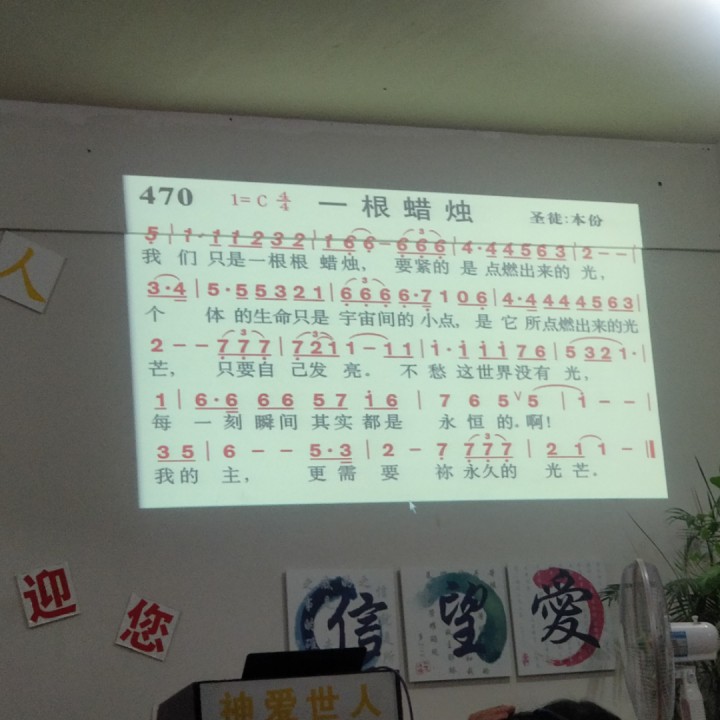 470
1=C 4/4
一根蜡烛
圣徒:本份
5 | 1·1 1 2 3 2 | 1 6 6 – 6 6 6 | 4·4 4 5 6 3 | 2 – – |
我 们 只是一根根 蜡烛， 要紧的 是 点燃出来的 光，
3·4 | 5·5 5 3 2 1 | 6 6 6 6·7 1 0 6 | 4·4 4 4 4 5 6 3 |
个 体 的生命只是 宇宙间的 小点，是 它 所点燃出来的光
2 – – 7 7 7 | 7 2 1 1 – 1 1 | 1·1 1 1 7 6 | 5 3 2 1· |
芒， 只要自 己发 亮。 不 愁 这世界没有 光，
1 | 6·6 6 6 5 7 1 6 | 7 6 5 ∨ 5 | 1 – – |
每 一刻 瞬间 其实 都是 永 恒 的。啊！
3 5 | 6 – – 5·3 | 2 – 7 7 7 7 | 2 1 1 – ‖
我的 主， 更 需 要 祢 永久的 光 芒。
人
迎
您
信
望
愛
神爱世人